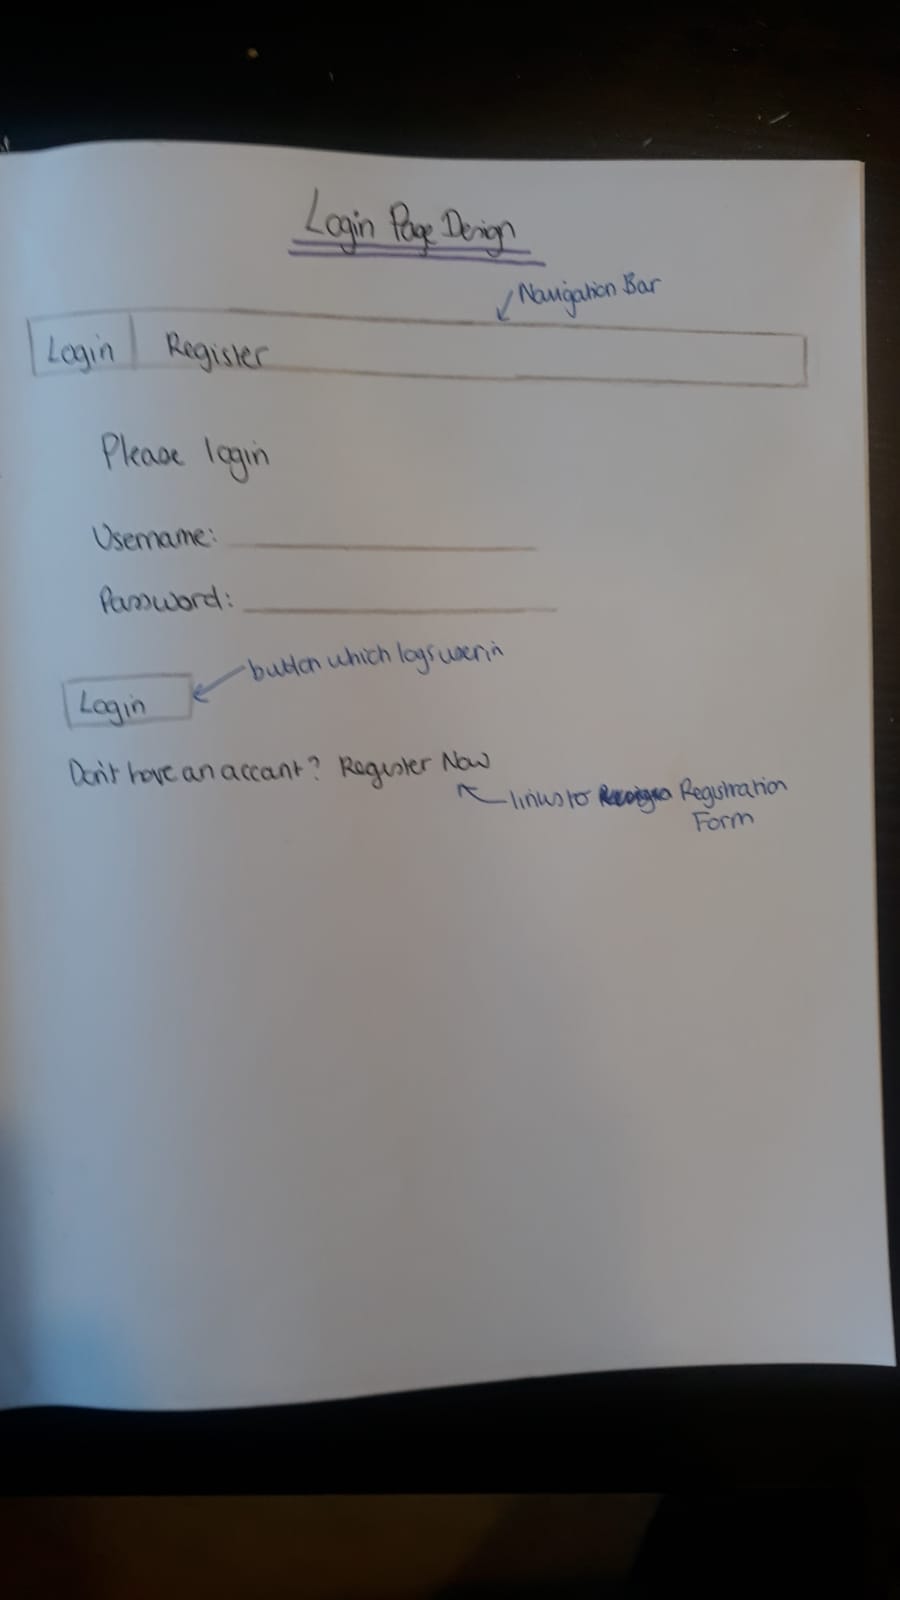 Login Page Design
Navigation Bar
Login Register
Please login
Username:
Password:
button which logs user in
Login
Don't have an account? Register Now
links to Registration
Form